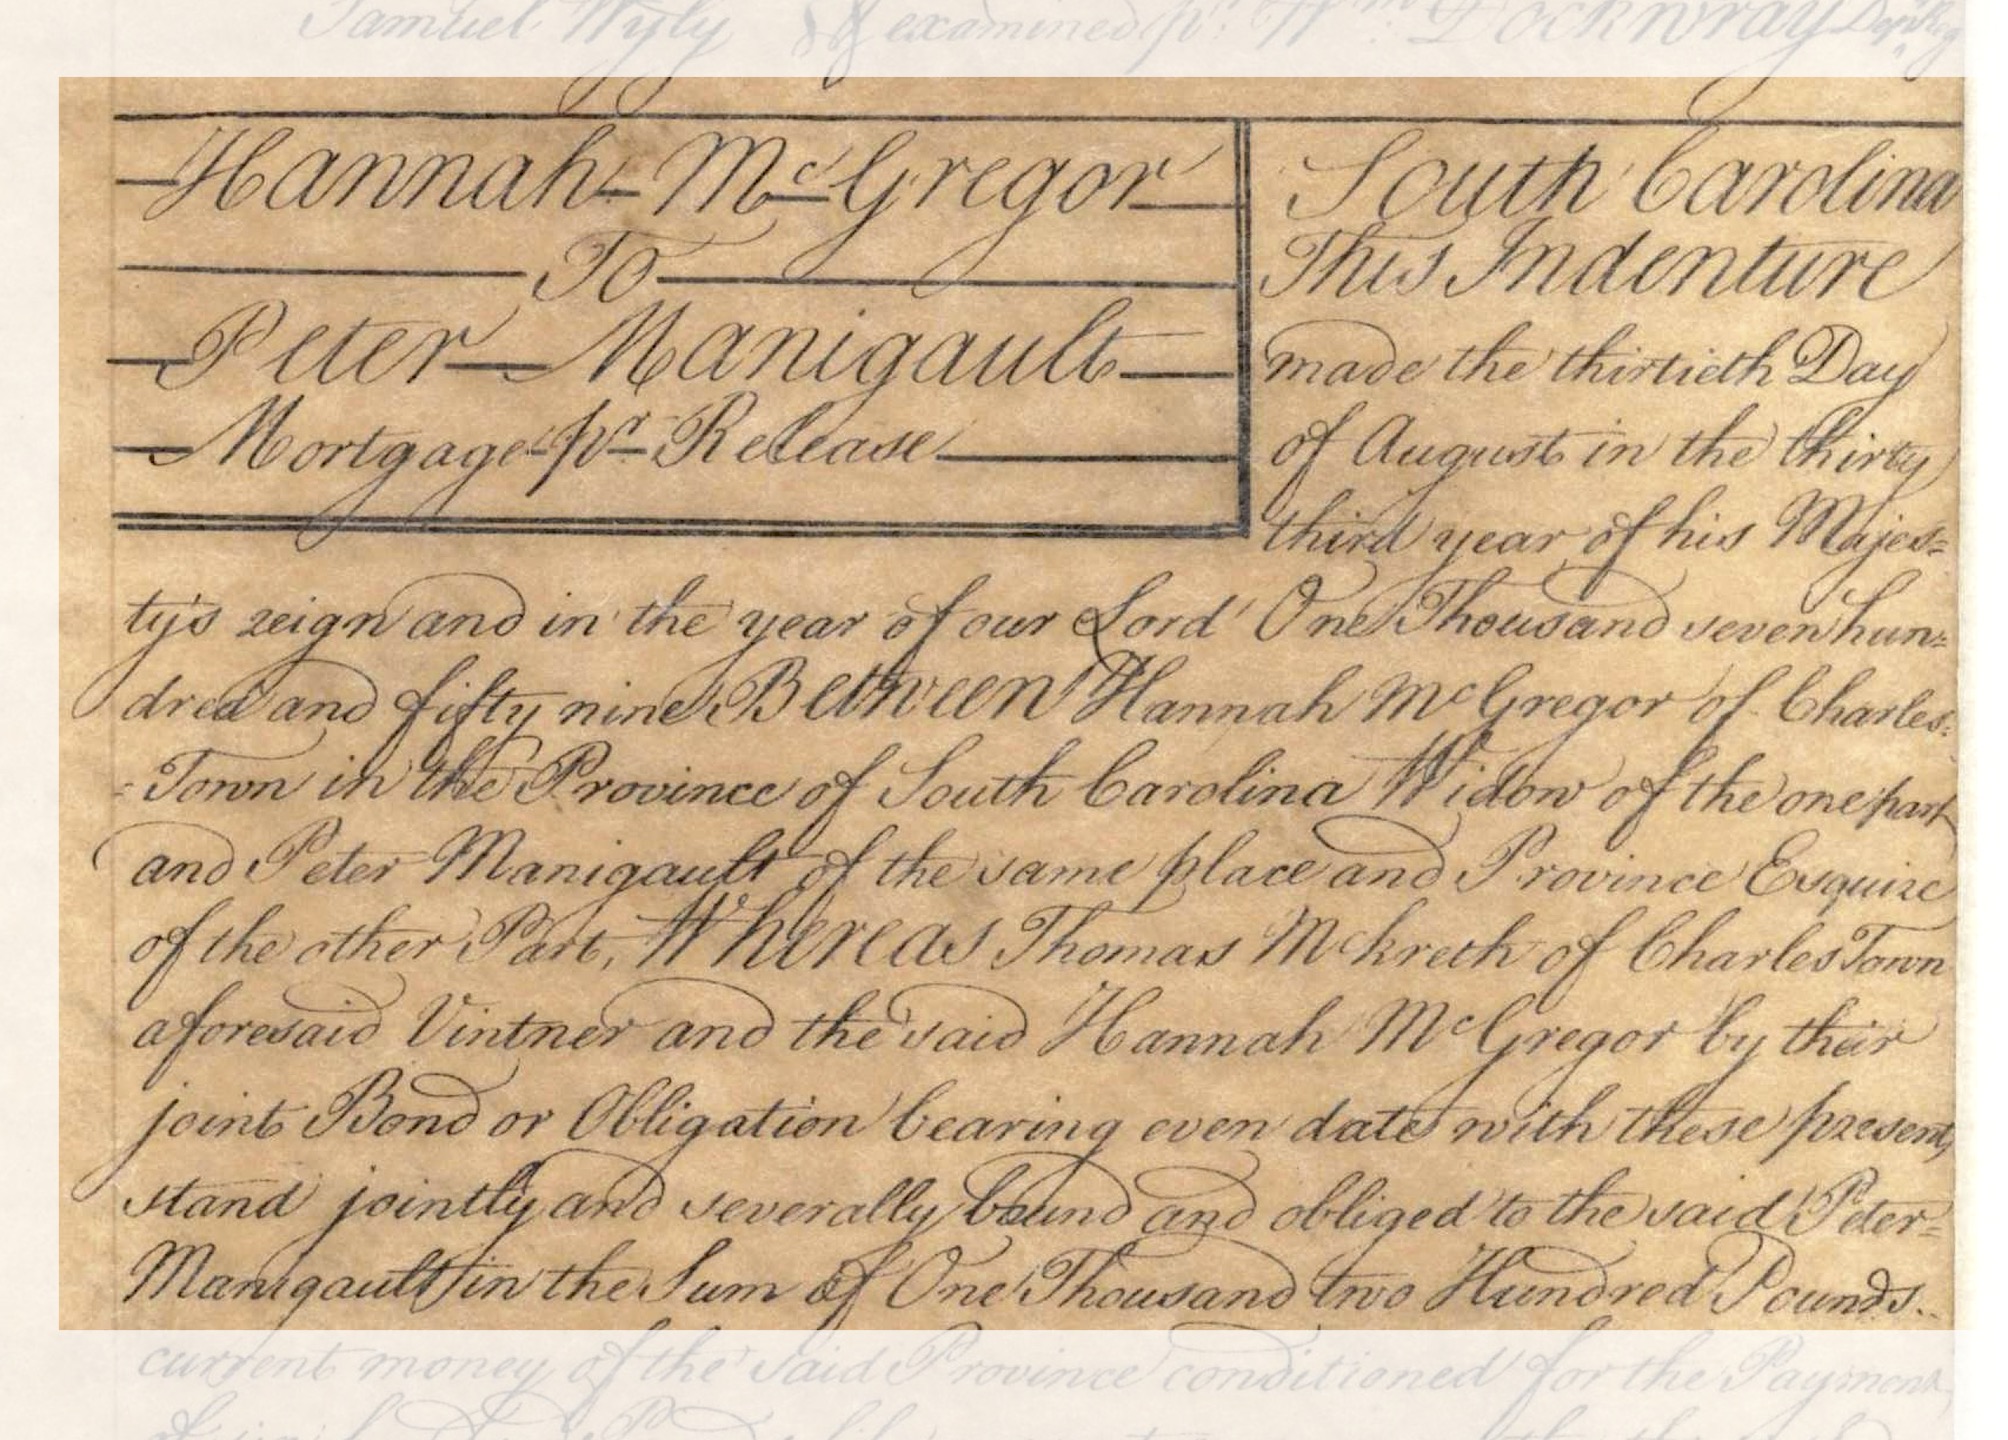 Samuel Wyly & examined pr. Wm. Dockwray Depy Reg
Hannah McGregor
To
Peter Manigault
Mortgage pr Release
South Carolina
This Indenture
made the thirtieth Day
of August in the thirty
third year of his Majes=
ty's reign and in the year of our Lord One Thousand seven hun=
dred and fifty nine Between Hannah McGregor of Charles=
=Town in the Province of South Carolina Widow of the one part
and Peter Manigault of the same place and Province Esquire
of the other Part, Whereas Thomas Mckreth of Charles Town
aforesaid Vintner and the said Hannah McGregor by their
joint Bond or Obligation bearing even date with these presents
stand jointly and severally bound and obliged to the said Peter=
Manigault in the Sum of One Thousand two Hundred Pounds
current money of the said Province conditioned for the Payment